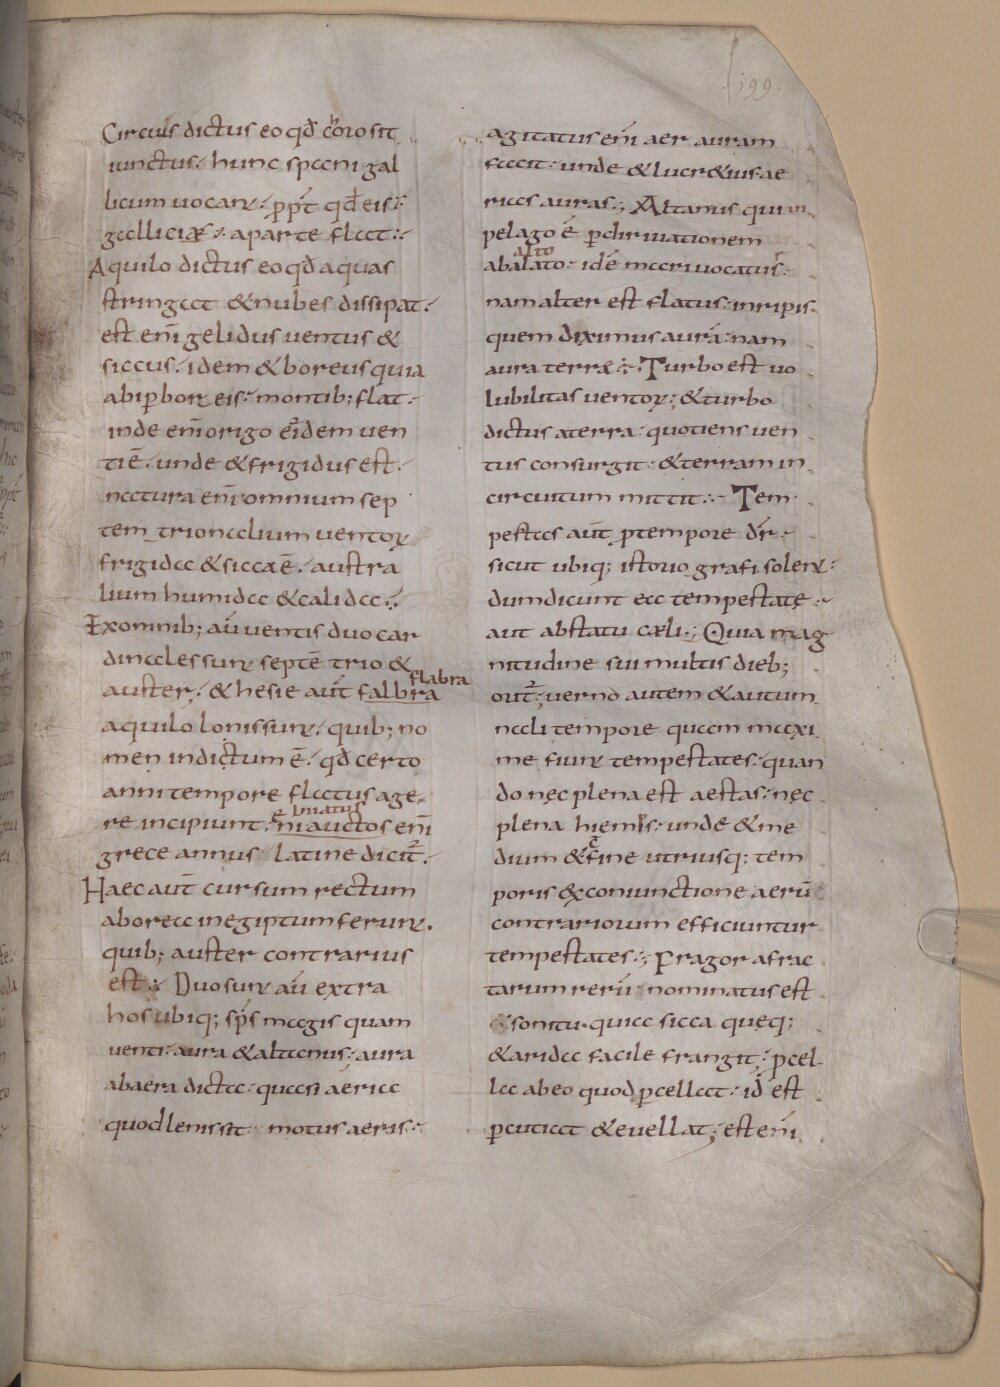 199
Circius dictus eo qđ choro sit
iunctus hunc spani gal
licum uocanт ppт̄ qđ eis
galliciæ aparte flat
Aquilo dictus eo qđ aquas
stringat & nubes dissipat
est enī gelidus uentus &
siccus idem & boreus quia
abiperboreis montib; flat
inde enī origo eīdem uen
tiē unde & frigidus est
natura enī omnium sep
tem trionalium uentoꝝ
frigida & sicca ē austra
lium humida & calida
Exomnib; aū uentis duo car
dinales sunt septē trio &
flabra
auster & hesie aūt falbra
aquilo lonis sunt quib; no
men indictum ē qđ certo
anni tempore flatus age
e bniatus
re incipiunt niauctos enī
grece annus latine dicit̄
Haec aūt cursum rectum
aborea in egiptum ferunt
quib; auster contrarius
est Duo sunt aū extra
hos ubiq; sps̄ magis quam
uenti aura & altanus aura
abaera dicta quasi aeria
quod lenis sit motus aeris
agitatus enī aer auram
facit unde & lucr&ius ae
rias auras Altanus qui in
pelago ē p diriuationem
alto
abalato idē maeri uocatus
nam alter est flatus in ripis
quem diximus aurā nam
aura terræ Turbo est uo
lubilitas uentoꝝ & turbo
dictus aterra quotiens uen
tus consurgit & terram in
circuitum mittit Tem
pestas aūt p tempore dr̄
sicut ubiq; istorio grafi solent
dum dicunt ea tempestate
aut abstatu cæli Quia mag
nitudine sui multis dieb;
orit̄ uerno autem & autum
nali tempore quam maxi
me fiunt tempestates quan
do nec plena est aestas nec
plena hiemis unde & me
dium & fine utriusq; tem
poris & coniunctione aerū
contrariorum efficiuntur
tempestates Fragor afrac
tarum rerū nominatus est
& sonitu quia sicca queq;
& arida facile frangit pcel
la ab eo quod pcellat id est
pcutiat & euellat est enī